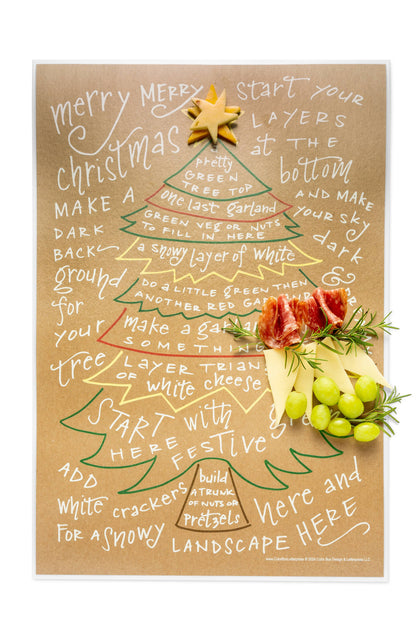 merry MERRY
christmas
start YOUR
LAYERS
at THE
bottom
MAKE A
DARK
BACK
ground
for
your
tree
AND MAKE
your SKY
dark
&
pretty
GREEN
TREE TOP
one last garland
GREEN VEG OR NUTS
TO FILL IN HERE
a snowy layer of white
DO a little GREEN then
ANOTHER RED
make a
SOMETHING
LAYER
of white cheese
START with
HERE FESTIVE
build
A TRUNK
OF NUTS OR
pretzels
ADD
white crackers
FOR A SNOWY
LANDSCAPE HERE
here and